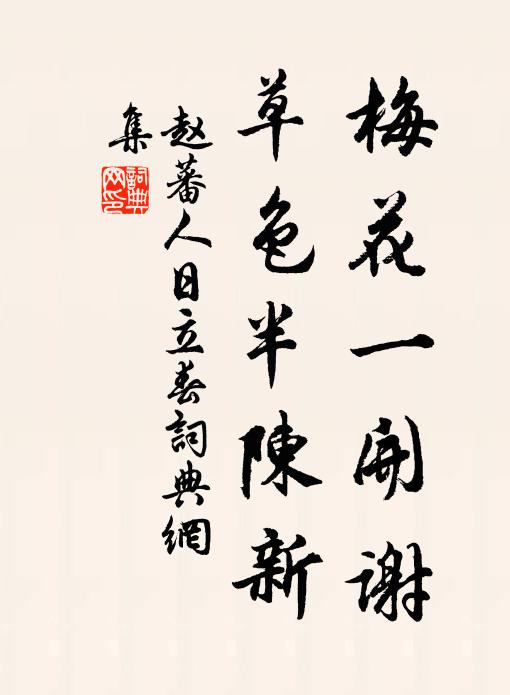 梅花一開謝
草色半陳新
赵蕃人日立春詞典網
集
詞典
网印